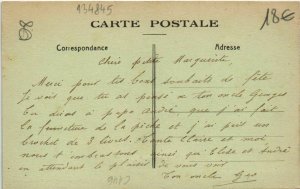 134845
18€
CARTE POSTALE
Correspondance
Adresse
Chère petite Marguerite,
Merci pour tes bons souhaits de fête
Je vois que tu as pensé à ton oncle Georges
Tu diras à papa André que j'ai fait
la fermeture de la pêche et j'ai pris un
brochet de 3 livres. Tante Claire et moi
nous t'embrassons ainsi que Elise et André
en attendant le plaisir de vous voir
Ton oncle Geo